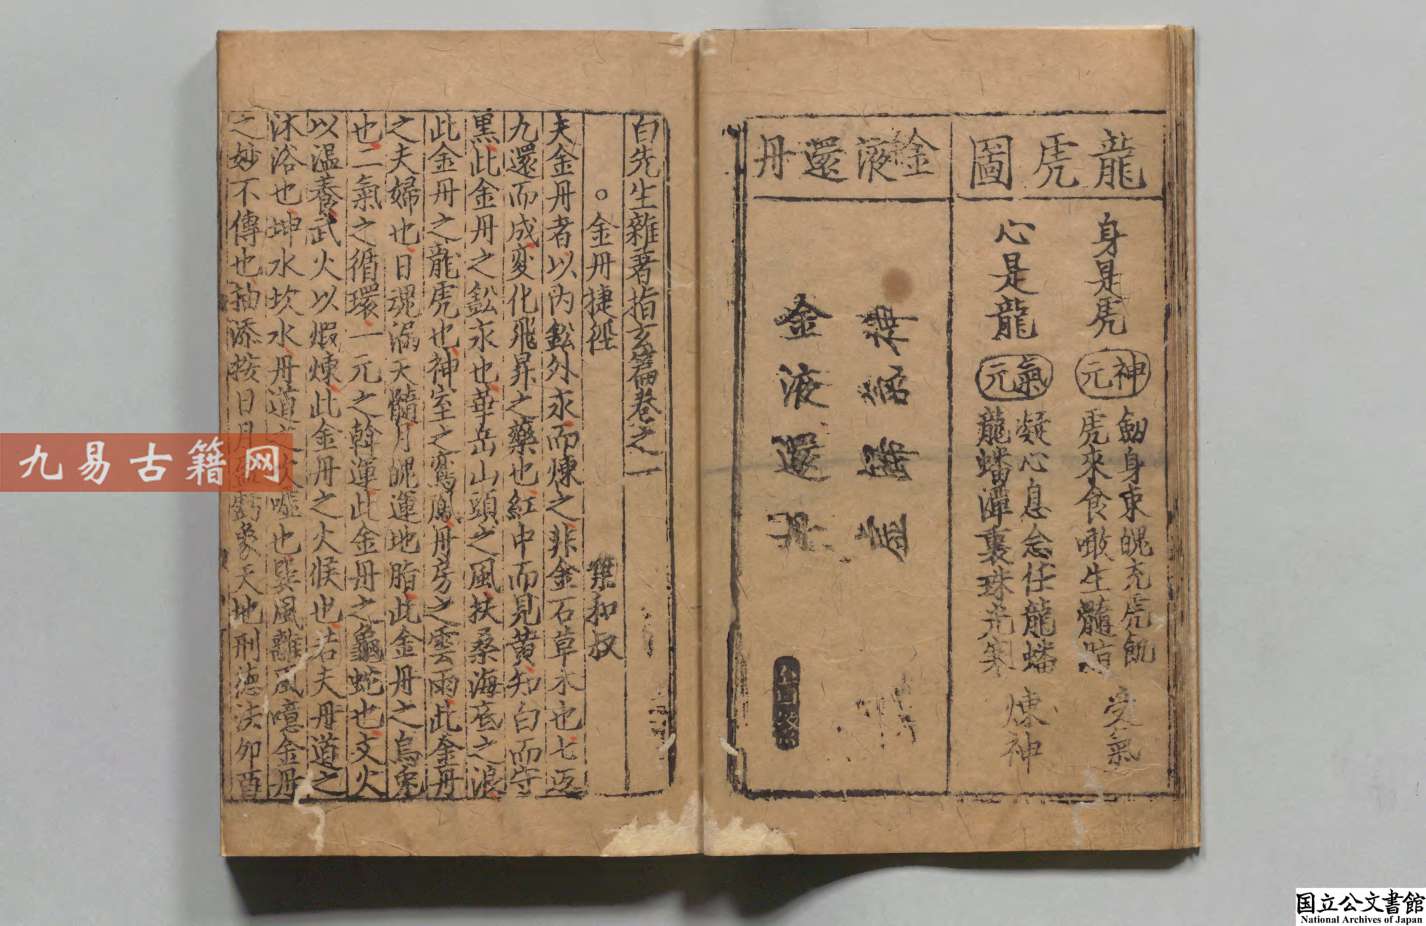 龍虎圖
身是虎
神元
劔身束魄充虎飢
虎來食噉生髓
受氣
心是龍
氣元
凝心息念任龍蟠
龍蟠潭裏珠光寒
煉神
金液還丹
金液還丹
白先生雜著指玄篇卷之一
○金丹捷徑 葉和叔
夫金丹者以內鈆外汞而煉之非金石草木也七返
九還而成变化飛昇之藥也紅中而見黄知白而守
黒此金丹之鈆汞也華岳山頭之風扶桑海底之浪
此金丹之龍虎也神室之鸞鳳丹房之雲雨此金丹
之夫婦也日魂涡天髓月魄運地脂此金丹之烏兔
也二氣之循環一元之斡運此金丹之龜蛇也文火
以温養武火以煅煉此金丹之火候也若夫丹道之
沐浴也坤水坎水丹道之吹噓也巽風離風噫金丹
之妙不傳也抽添按日月盈虧象天地刑德法卯酉
九易古籍网
国立公文書館
National Archives of Japan